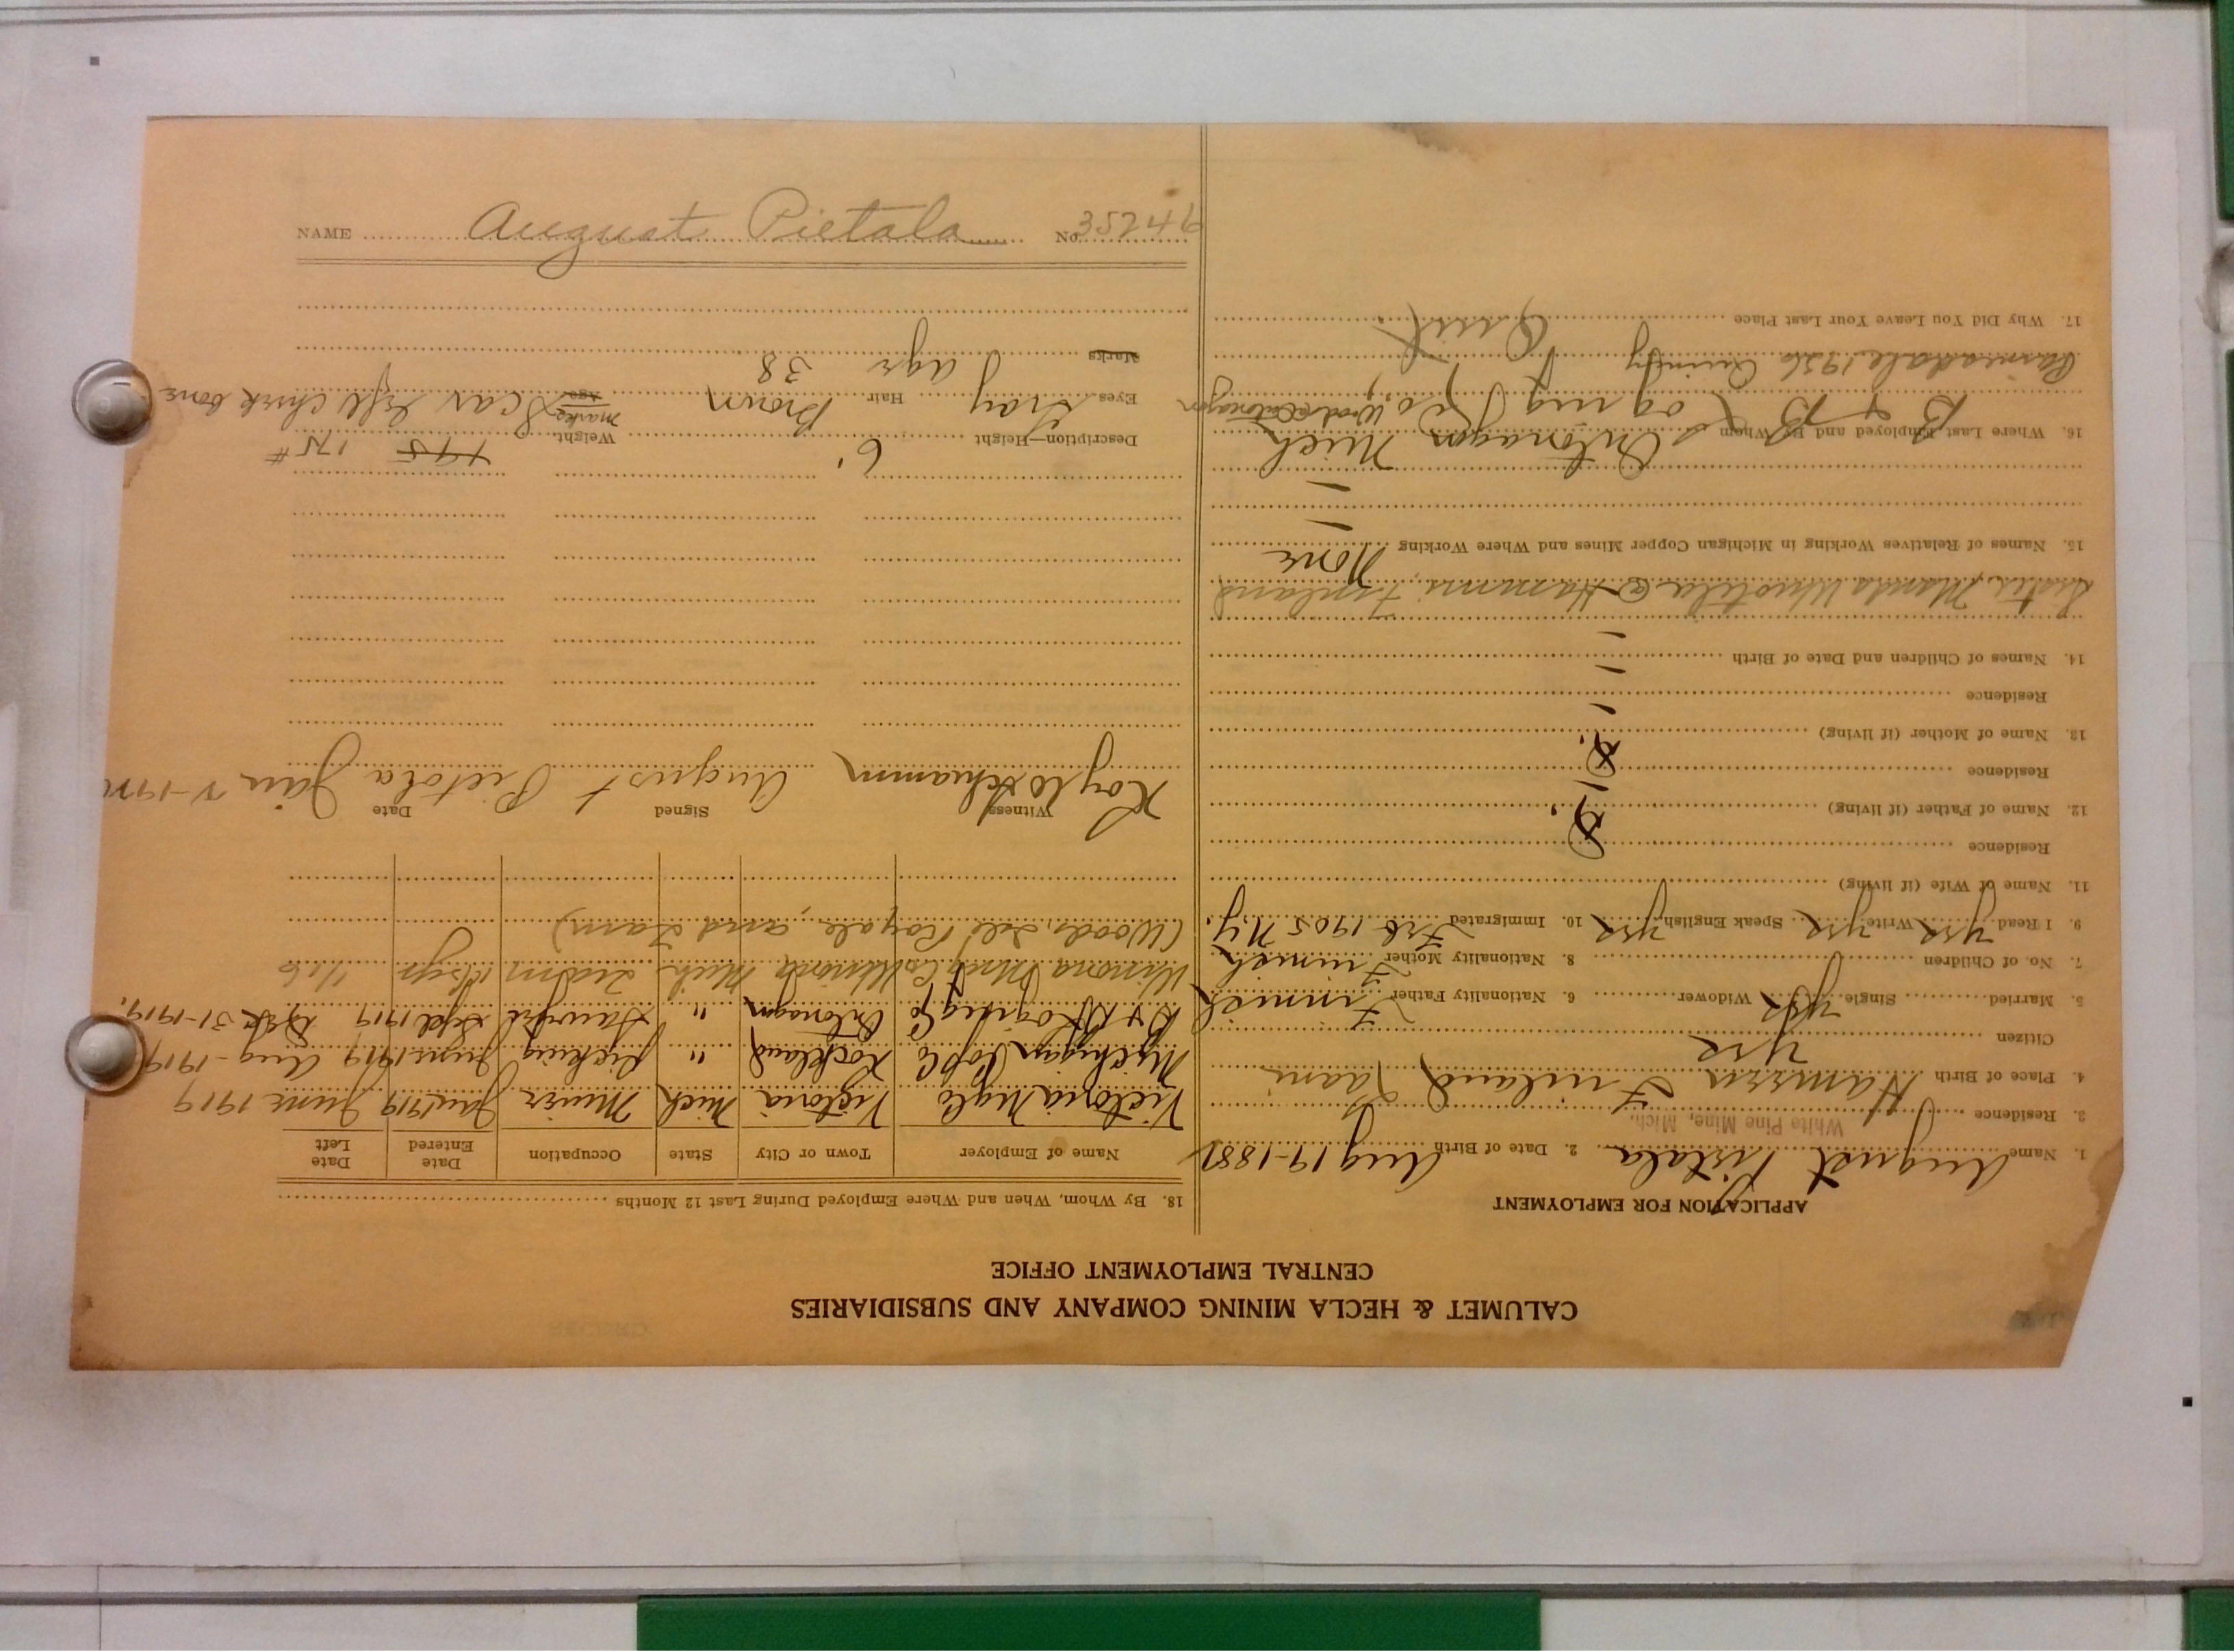 NAME August Pietala No. 35246
CALUMET & HECLA MINING COMPANY AND SUBSIDIARIES
CENTRAL EMPLOYMENT OFFICE
APPLICATION FOR EMPLOYMENT
1. Name August Pietala 2. Date of Birth Aug 19-1881
3. Residence White Pine Mine, Mich.
4. Place of Birth Finland
Citizen yes
5. Married Single yes Widower 6. Nationality Father Finnish
7. No. of Children 8. Nationality Mother Finnish
9. I Read yes Write yes Speak English yes 10. Immigrated Feb 1905 N.Y.
11. Name of Wife (if living)
Residence
12. Name of Father (if living) D.
Residence -
13. Name of Mother (if living) D.
Residence -
14. Names of Children and Date of Birth -
-
Sister, Manda @ Finland
15. Names of Relatives Working in Michigan Copper Mines and Where Working None
-
-
16. Where Last Employed and By Whom Ontonagon Mich
B & B Loging Co,
Painesdale 1926 Quincy
17. Why Did You Leave Your Last Place Quit
18. By Whom, When and Where Employed During Last 12 Months
Name of Employer Town or City State Occupation Date Entered Date Left
Victoria Mg Co Victoria Mich Miner Jan 1919 June 1919
Michigan Cop Co Rockland " Picking June 1919 Aug-1919
B & B Loging Co Ontonagon " Sept 1919 Dec 31-1919.
Winona Mng Co Winona Mich
(Woods, Isle Royale, and Farm)
Witness Signed August Pietala Date Jan
Description—Height 6' Weight 195 175#
Eyes Gray Hair Brown Age Marks Scar left cheek bone
Marks Age 38